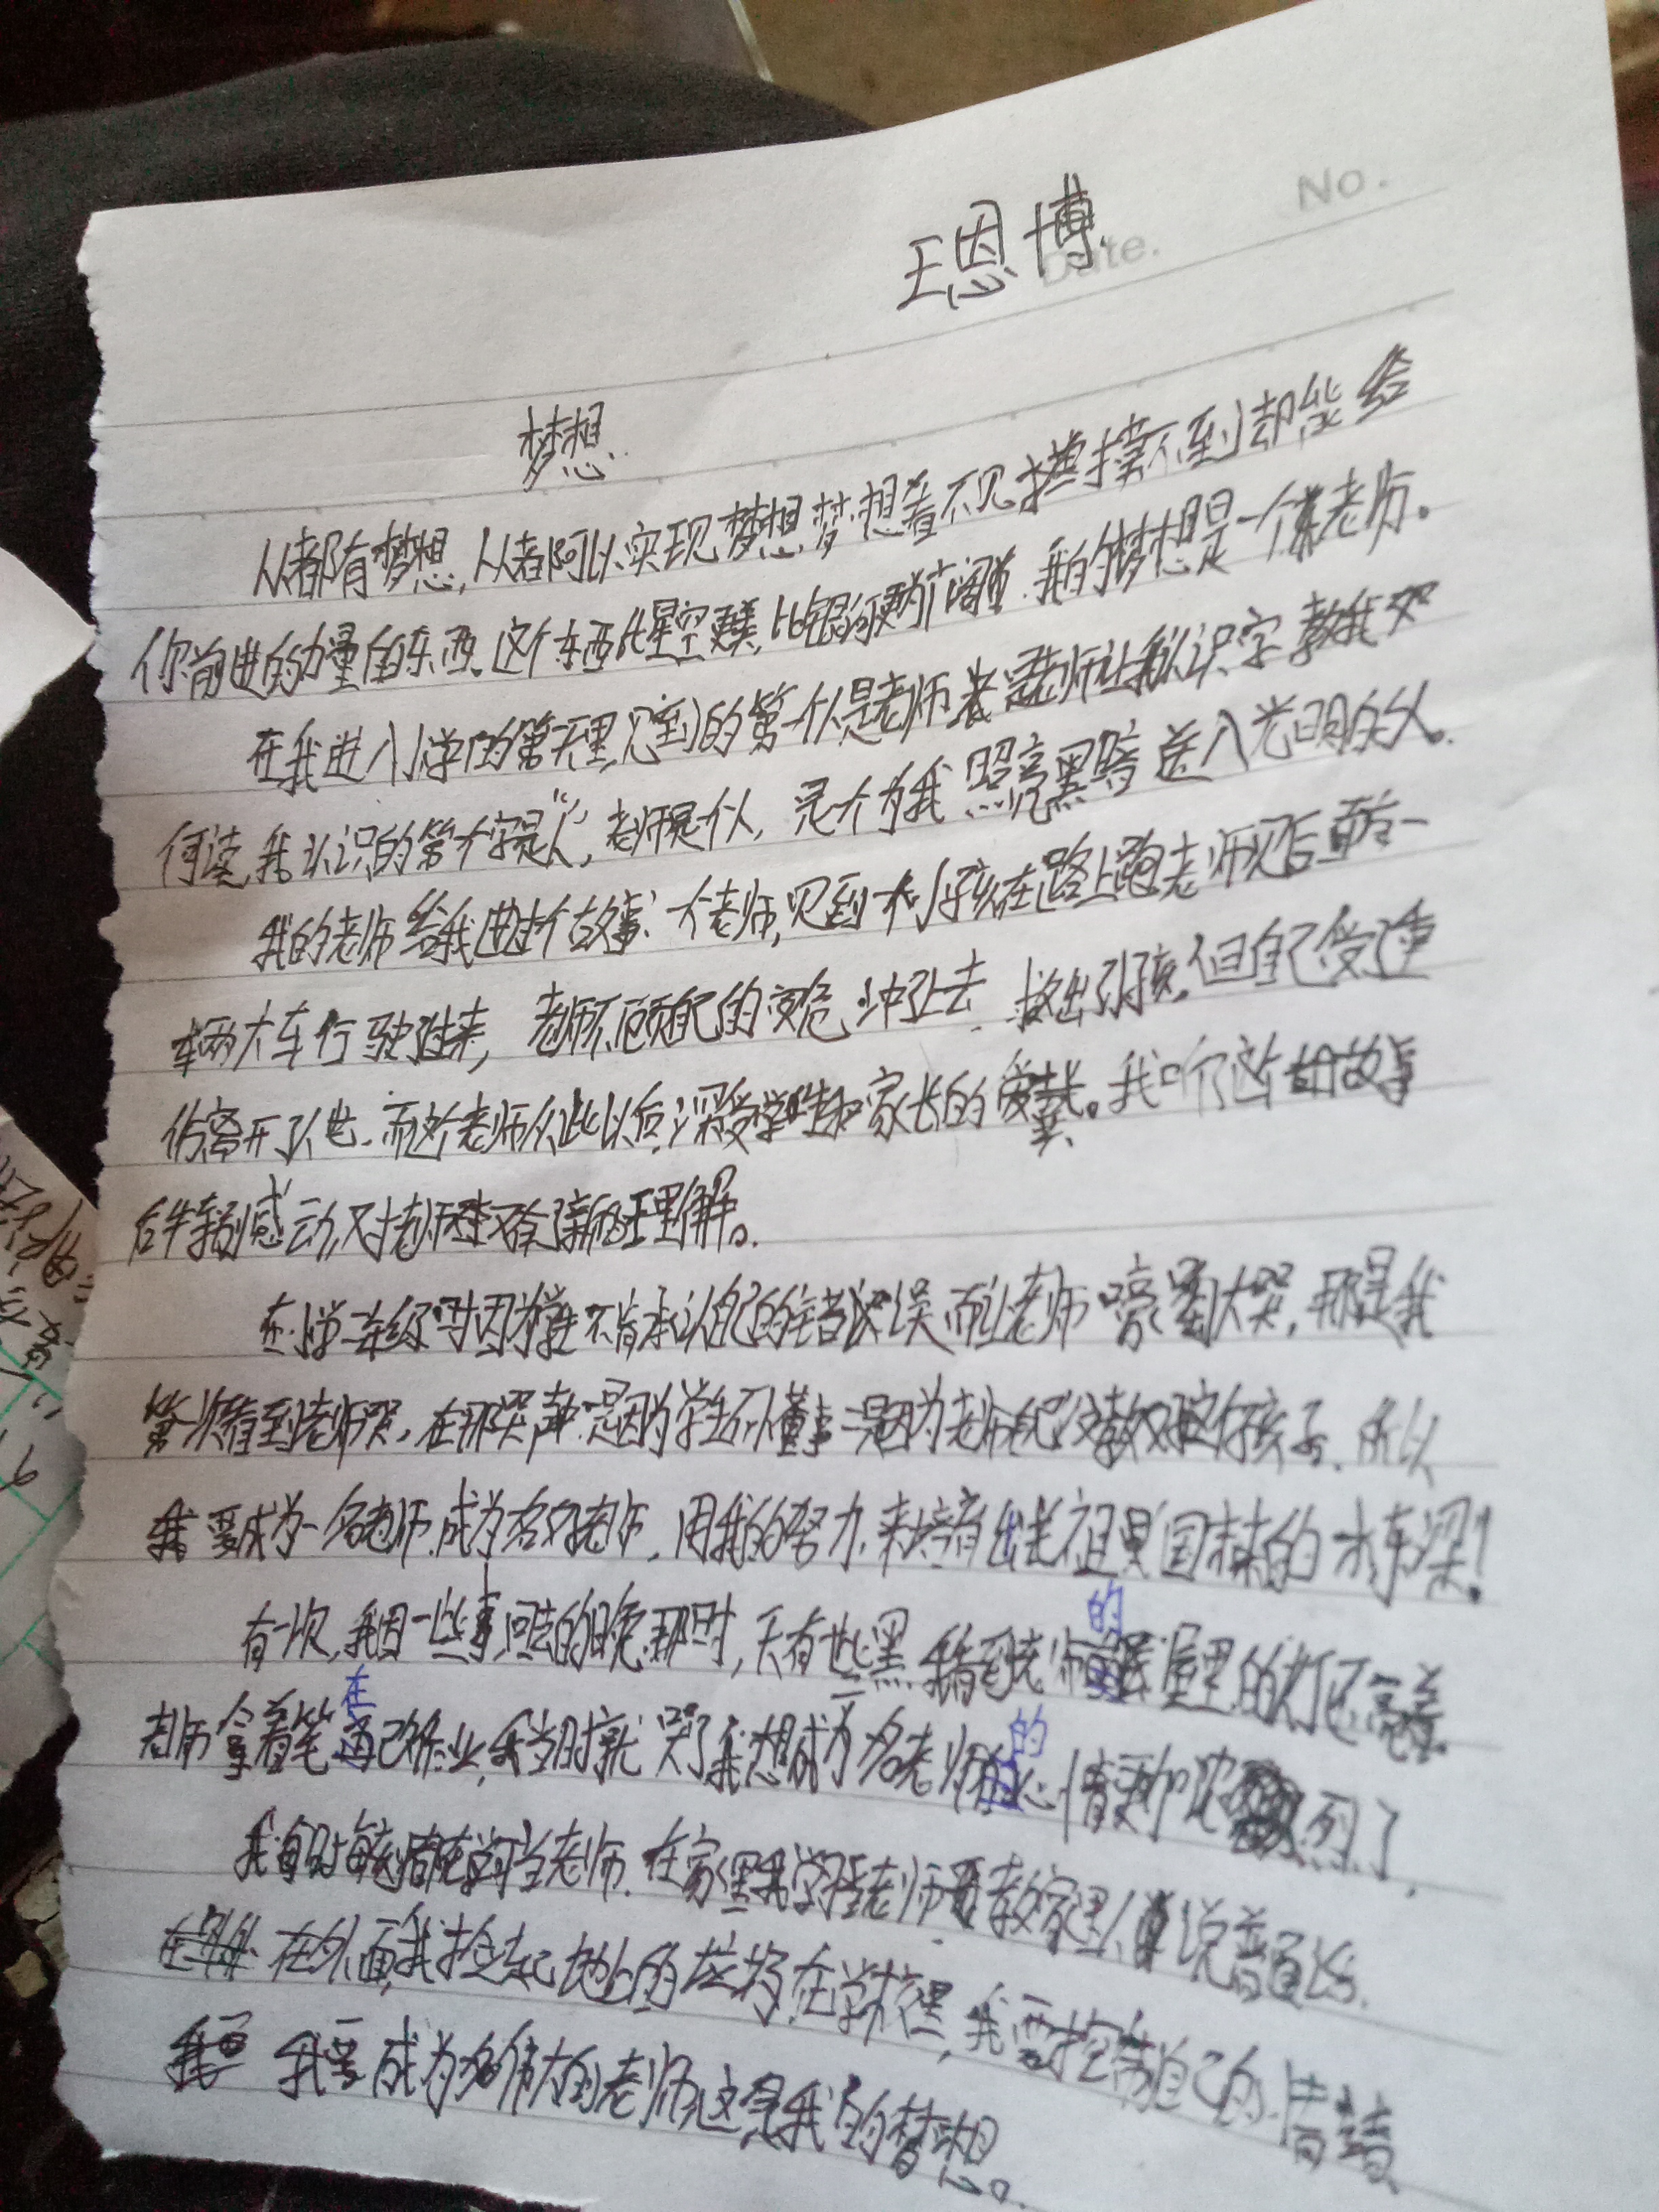 No.
Date.
王恩博
梦想
人人都有梦想,人人都可以实现梦想,梦想看不见摸不到却能给
你前进的力量的东西,这个东西比星空更美,比银河更为广阔。我的梦想是一个老师。
在我进入小学的第一天里,见到的第一个人是老师,老师让我认识字,教我如
何读,我认识的第一个字是“人”,老师是个人,是个为我照亮黑暗送入光明的人。
我的老师给我讲过一个故事:一个老师,见到一个小孩在路上跑,老师见后面有一
辆大车行驶过来,老师不顾自己的安危,冲了上去,救出了小孩,但自己受了重
伤离开了人世,而这个老师从此以后,深受学生和家长的爱戴。我听了这个故事
后特别感动,又对老师有了新的理解。
在小学二年级时因为学生不肯承认自己的错误而让老师嚎啕大哭,那是我
第一次看到老师哭,在那哭声中,一是因为学生不懂事,二是因为老师自己没教好孩子,所以
我要成为一名老师,成为一名好老师,用我的努力,来培育出祖国未来的栋梁!
有一次,我因一些事,回去的晚,那时,天有些黑,我看到老师的屋里的灯还亮着,
老师拿着笔在作业,我当时就哭了,我想成为一名老师的心情更加烈了,
在家里我学老师教家里人说普通话,
在外面,我捡起地上的垃圾,在学校里,我要控制自己的情绪,
我要 我要成为一名伟大的老师,这是我的梦想。